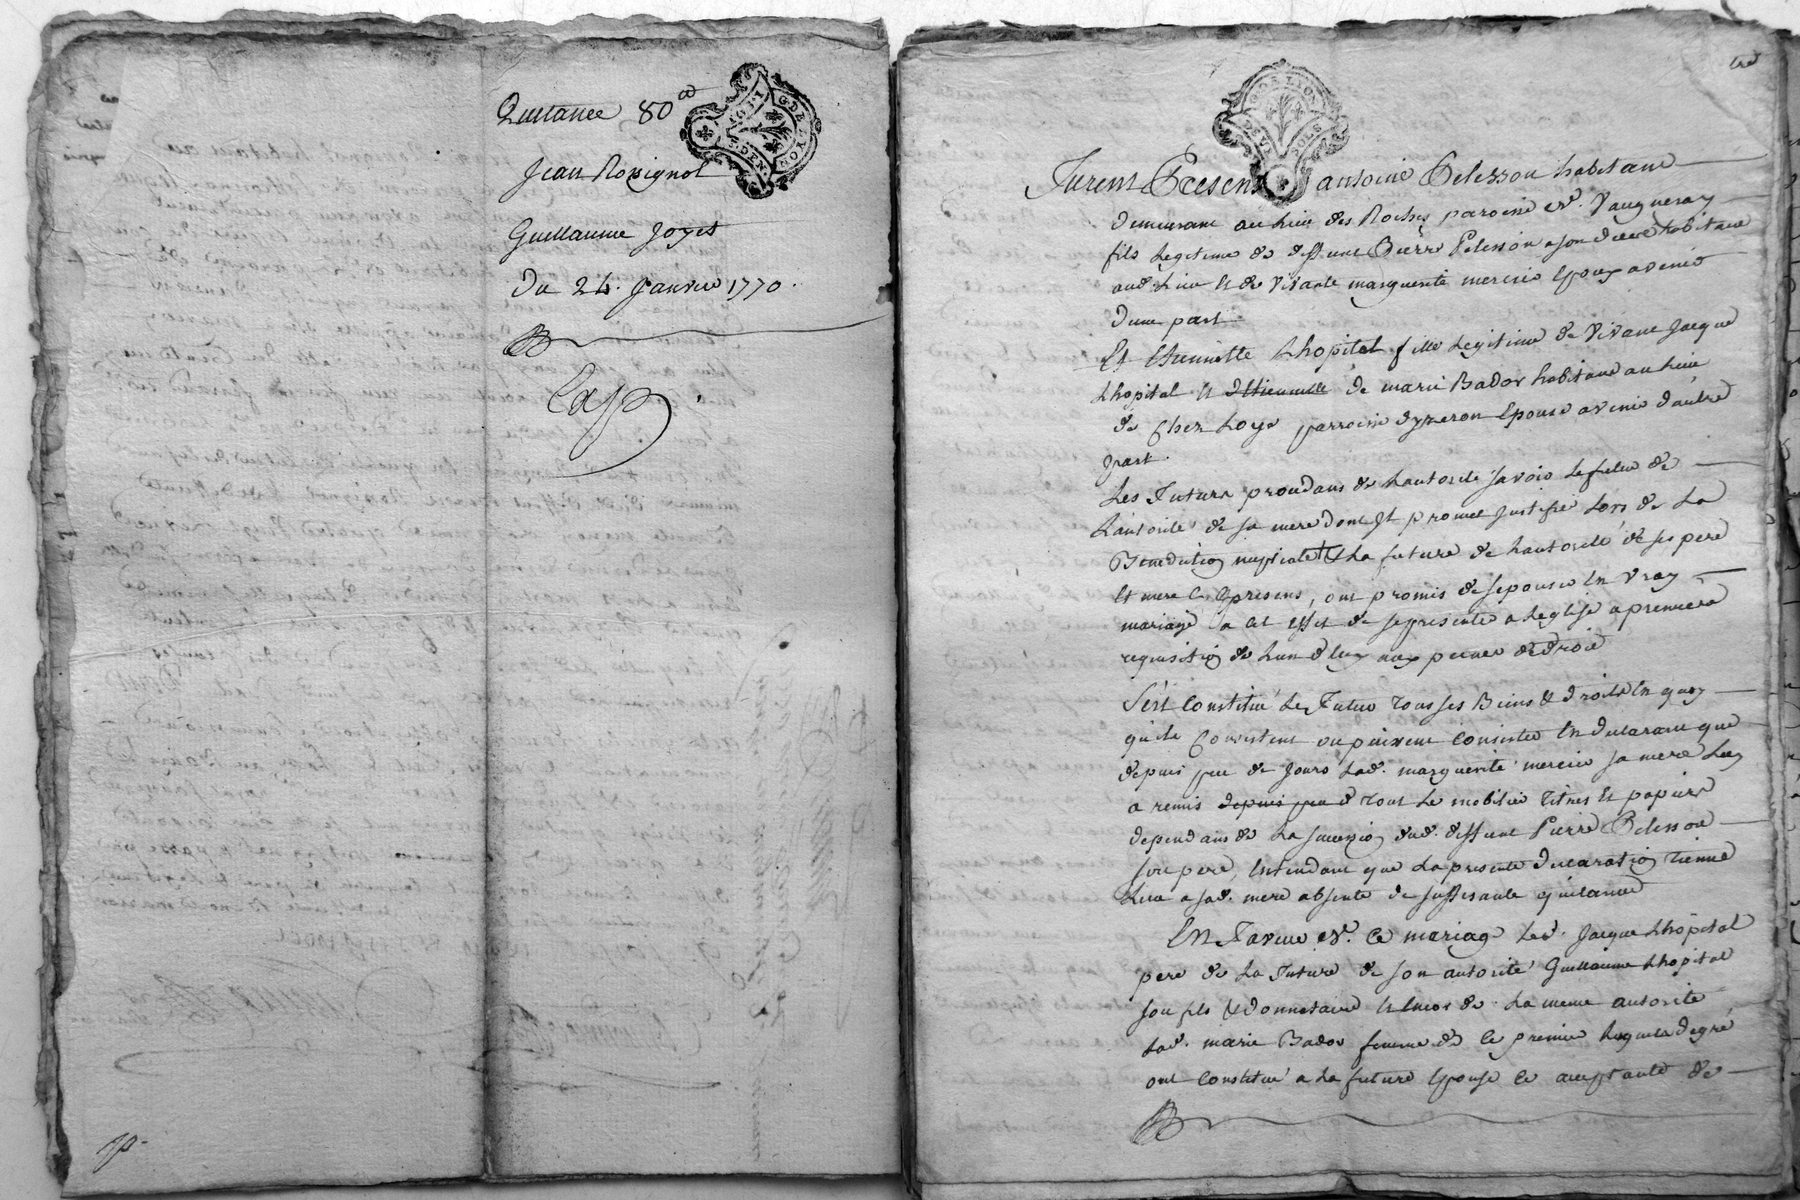 Quittance 80
Jean Rossignol
Guillaume Joyet
Du 24. Janvier 1770.
G. DE LYON
DEN
G. DE LYON
DEUX SOLS
Furent Presens antoine Pelisson habitant
demeurant au lieu des Roches paroisse de Vaugneray
fils Legitime de deffunt Pierre Pelisson a son vivant habitant
aud. Lieu et de vivante marguerite mercier Epoux avenir
dune part
Et Etiennette Lhopital fille Legitime de vivant Jacque
Lhopital et de marie Bador habitant au lieu
de Chez Loye parroisse dyzeron Epouse avenir dautre
part.
Les Futurs procedans de Lautorité savoir Le futur de
Lautorité de sa mere dont Jl promet justifier Lors de La
Benediction nuptiale et La future de Lautorité de ses pere
et mere Cy presens, ont promis de sepouser En vray
mariage a cet effet de se presenter a Leglise a premiere
requisition de Lun deux aux peines de droit
Sest Constitué Le Futur tous ses Biens et droits En quoy
quils Consistent ou puissent Consister En declarant que
depuis peu de jours Lad. marguerite mercier sa mere Luy
a remis depuis peu d tout Le mobilier titres et papiers
dependans de La succession dud. deffunt Pierre Pelisson
son pere, Entendant que La presente declaration tienne
Lieu a sad. mere absente de suffisante quittance
En Faveur de Ce mariage Led. Jacque Lhopital
pere de La Future de son autorité Guillaume Lhopital
son fils et donnataire et encor de La meme autorité
Lad. marie Bador femme de Ce premier Lesquels de gré
ont Constitué a La future Epouse Ce acceptante de